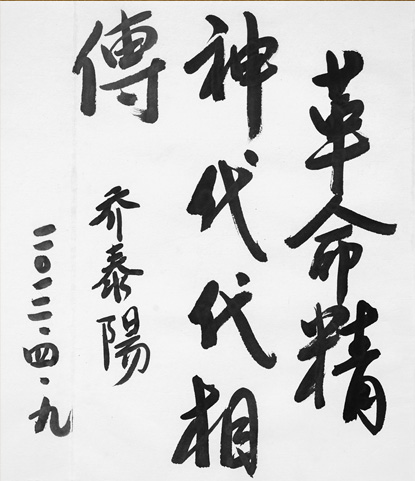 革命精
神代代相
傳
乔泰陽
二〇一二·四·九